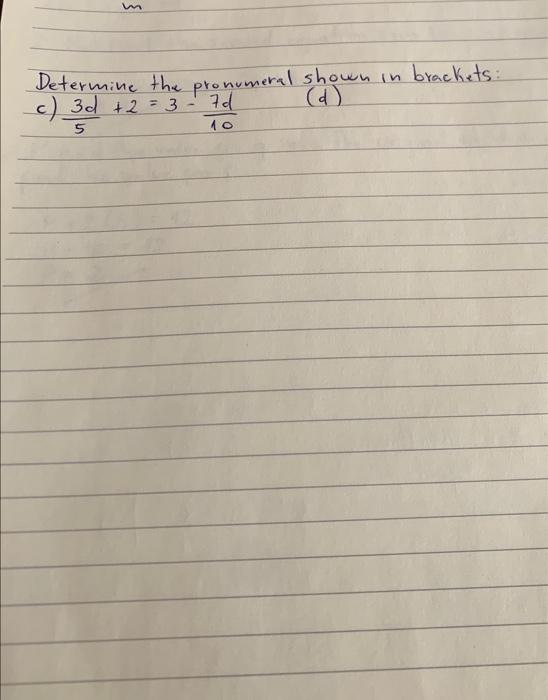 m
Determine the pronumeral shown in brackets:
c) 3d/5 + 2 = 3 - 7d/10 (d)